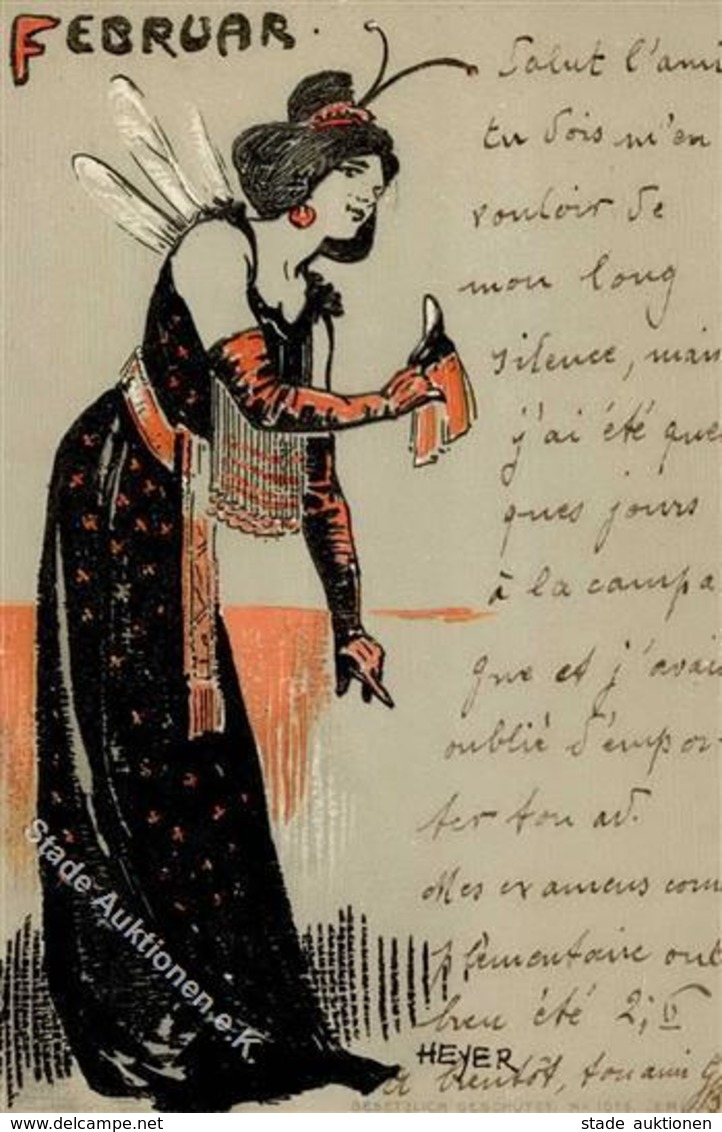 FEBRUAR.
Salut l'ami
tu dois m'en
vouloir de
mon long
silence, mais
j'ai été quel
ques jours
à la campa
gne et j'avais
oublié d'empor-
ter ton ad.
Mes examens com
plémentaire ont
bien été
HEYER
à bientôt, ton ami
GESETZLICH GESCHÜTZT.
Stade Auktionen e.K.
stade auktionen